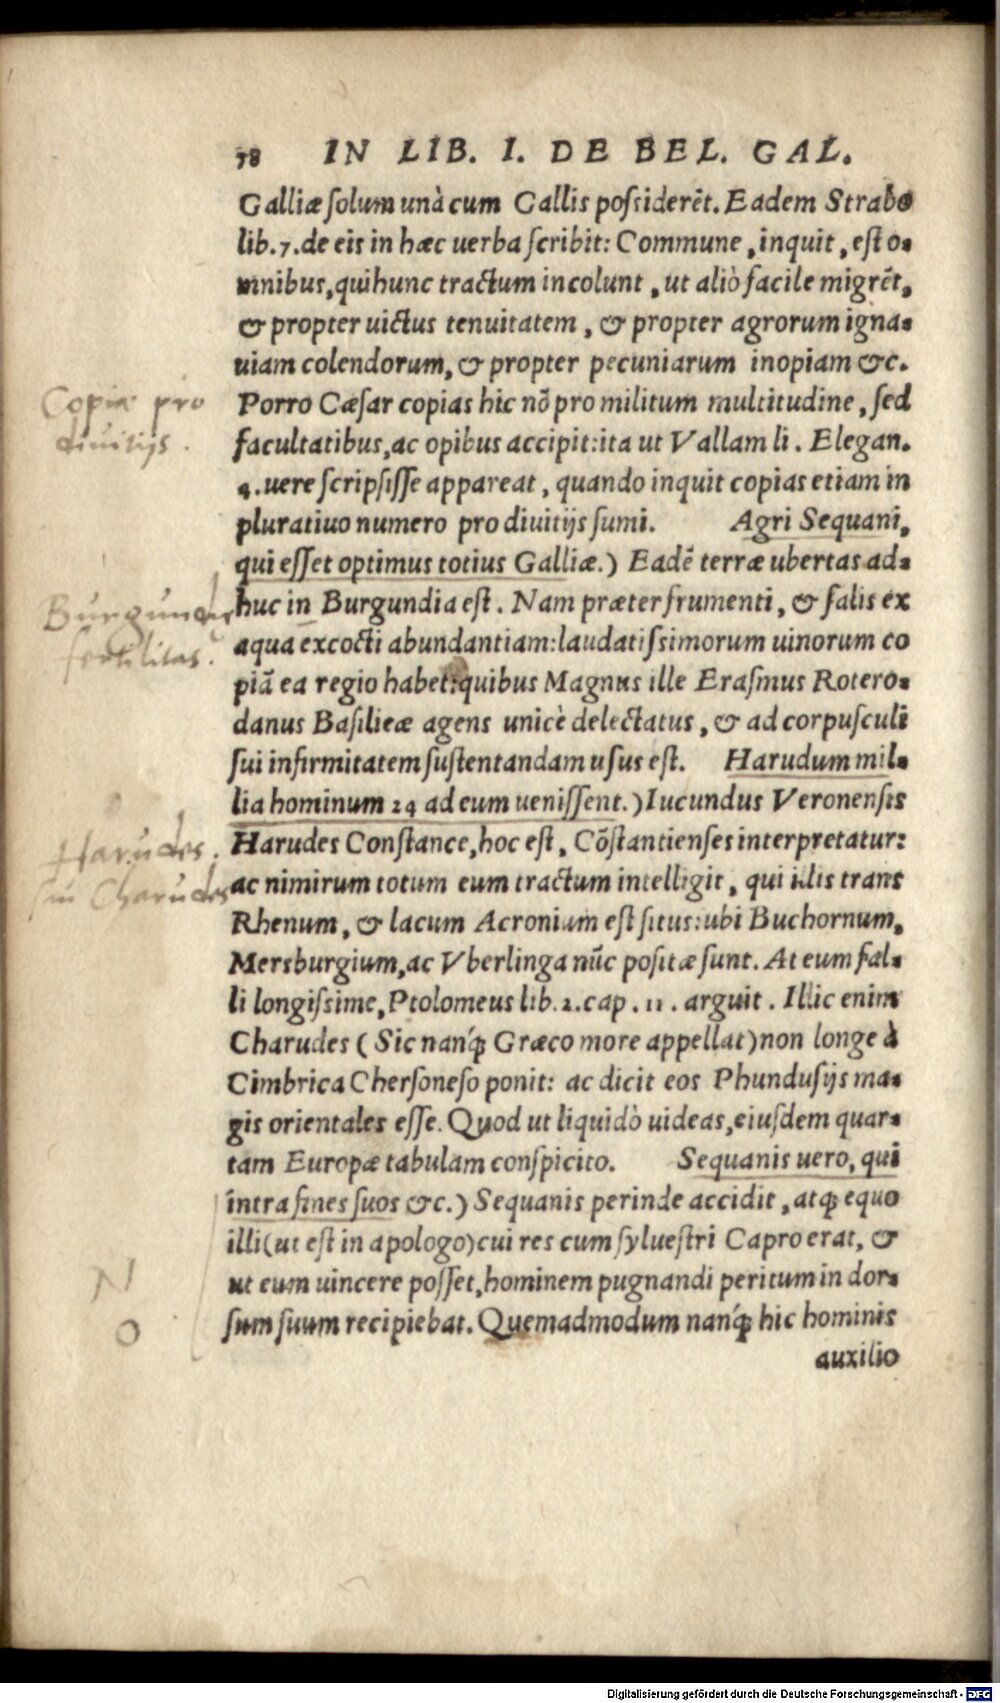 78 IN LIB. I. DE BEL. GAL.
Galliæ ſolum unà cum Gallis poſsiderēt. Eadem Strabo
lib.7.de eis in hæc uerba ſcribit: Commune, inquit, eſt o-
mnibus, qui hunc tractum incolunt, ut aliò facile migrēt,
& propter uictus tenuitatem, & propter agrorum igna-
uiam colendorum, & propter pecuniarum inopiam &c.
Porro Cæſar copias hic nō pro militum multitudine, ſed
facultatibus, ac opibus accipit: ita ut Vallam li. Elegan.
4. uere ſcripſiſſe appareat, quando inquit copias etiam in
pluratiuo numero pro diuitijs ſumi. Agri Sequani,
qui eſſet optimus totius Galliæ.) Eadē terræ ubertas ad-
huc in Burgundia eſt. Nam præter frumenti, & ſalis ex
aqua excocti abundantiam: laudatiſsimorum uinorum co
piā ea regio habet: quibus Magnus ille Eraſmus Rotero-
danus Baſileæ agens unicè delectatus, & ad corpuſculi
ſui infirmitatem ſuſtentandam uſus eſt. Harudum mil-
lia hominum 24 ad eum ueniſſent.) Iucundus Veronenſis
Harudes Conſtance, hoc eſt, Cōſtantienſes interpretatur:
ac nimirum totum eum tractum intelligit, qui illis trans
Rhenum, & lacum Acronium eſt ſitus: ubi Buchornum,
Mersburgium, ac Vberlinga nūc poſitæ ſunt. At eum fal-
li longiſsime, Ptolomeus lib.2.cap.11. arguit. Illic enim
Charudes (Sic nanq́; Græco more appellat) non longe à
Cimbrica Cherſoneſo ponit: ac dicit eos Phunduſijs ma-
gis orientales eſſe. Quod ut liquidò uideas, eiuſdem quar-
tam Europæ tabulam conſpicito. Sequanis uero, qui
intra fines ſuos &c.) Sequanis perinde accidit, atq; equo
illi (ut eſt in apologo) cui res cum ſylueſtri Capro erat, &
ut eum uincere poſſet, hominem pugnandi peritum in dor-
ſum ſuum recipiebat. Quemadmodum nanq́; hic hominis
auxilio
Copiæ pro
diuitijs.
Burgundiæ
fertilitas.
Harudes.
ſiu Charudes
N
O
Digitalisierung gefördert durch die Deutsche Forschungsgemeinschaft - DFG